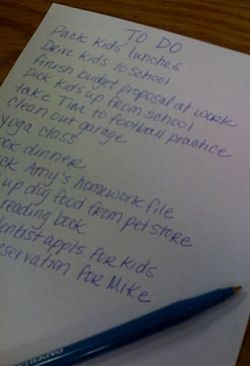 TO DO
Pack kids' lunches
Drive kids to school
finish budget proposal at work
pick kids up from school
take Tim to football practice
clean out garage
yoga class
ook dinner
ck Amy's homework file
up dog food from pet store
reading book
entist appts. for kids
servation for Mike